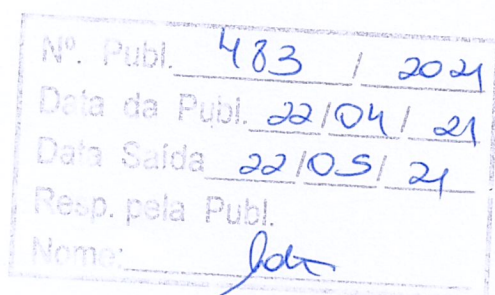 Nº. Publ. 483 / 2021
Data da Publ. 22/04/21
Data Saída 22/05/21
Resp. pela Publ.
Nome: